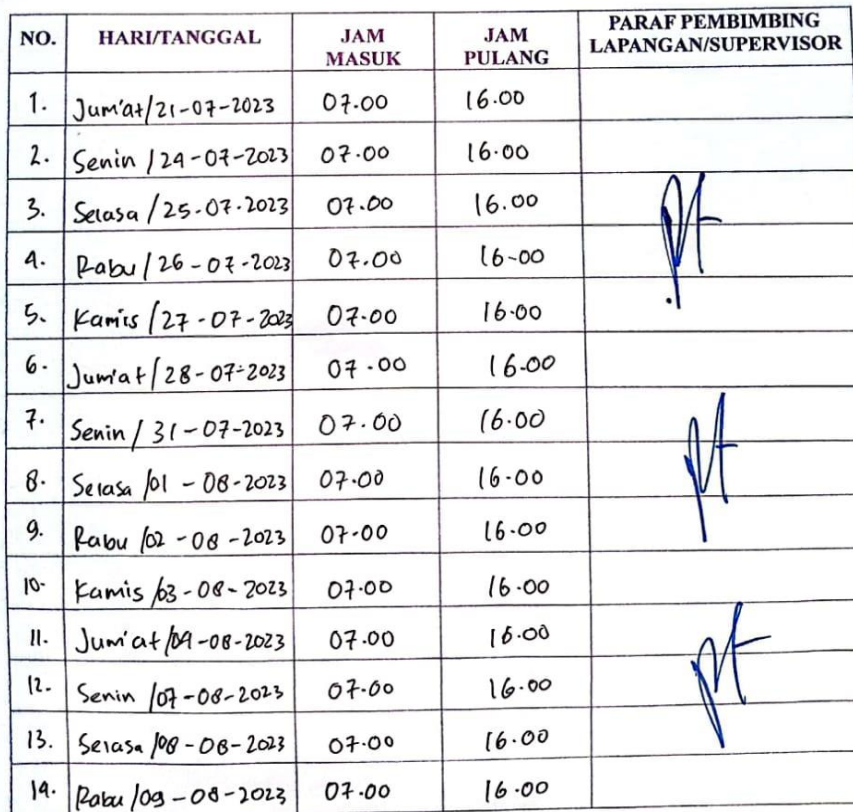 NO. HARI/TANGGAL JAM MASUK JAM PULANG PARAF PEMBIMBING LAPANGAN/SUPERVISOR
1. Jum'at/21-07-2023 07.00 16.00
2. Senin /24-07-2023 07.00 16.00
3. Selasa /25-07-2023 07.00 16.00
4. Rabu /26-07-2023 07.00 16-00
5. Kamis /27-07-2023 07.00 16.00
6. Jum'at/28-07-2023 07.00 16.00
7. Senin / 31-07-2023 07.00 16.00
8. Selasa /01-08-2023 07.00 16.00
9. Rabu /02-08-2023 07.00 16.00
10. Kamis /03-08-2023 07.00 16.00
11. Jum'at/04-08-2023 07.00 16.00
12. Senin /07-08-2023 07.00 16.00
13. Selasa /08-08-2023 07.00 16.00
14. Rabu /09-08-2023 07.00 16.00